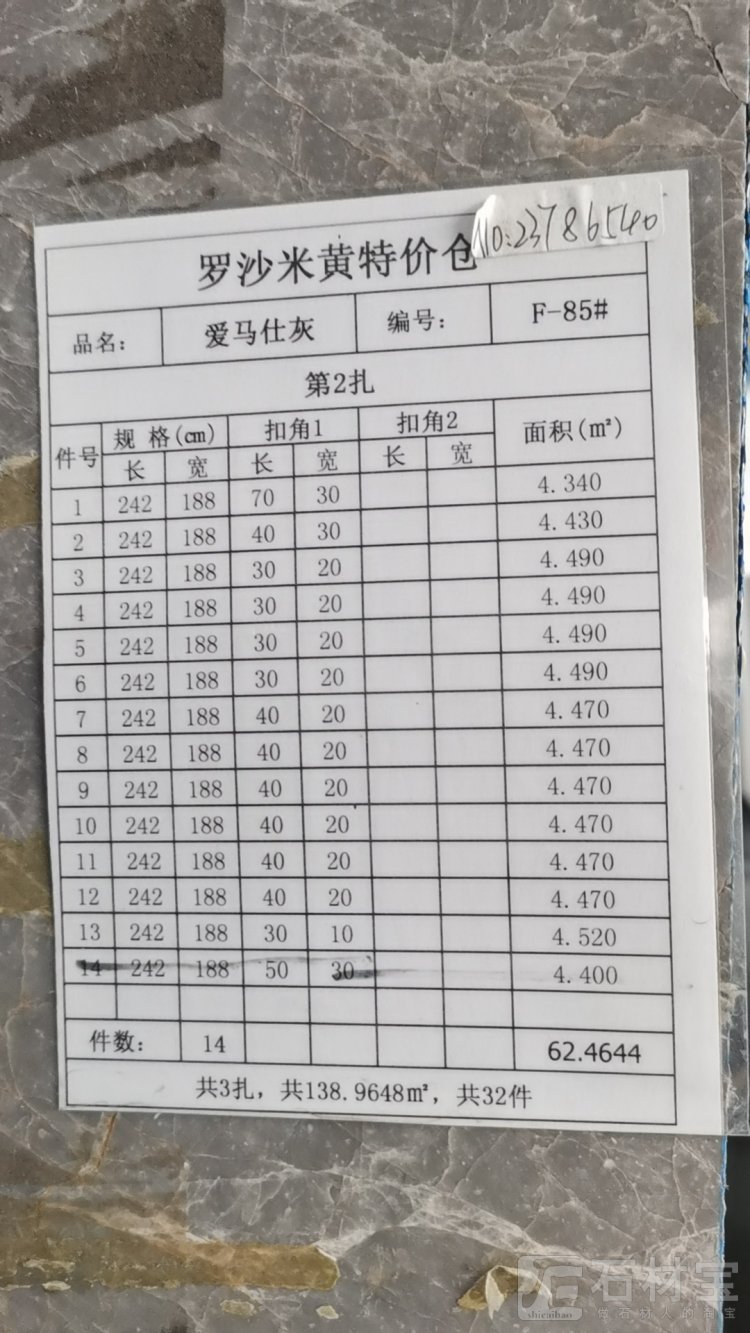 NO:23786540
罗沙米黄特价仓
品名: 爱马仕灰 编号: F-85#
第2扎
件号 规格(cm) 扣角1 扣角2 面积(m²)
长 宽 长 宽 长 宽
1 242 188 70 30 4.340
2 242 188 40 30 4.430
3 242 188 30 20 4.490
4 242 188 30 20 4.490
5 242 188 30 20 4.490
6 242 188 30 20 4.490
7 242 188 40 20 4.470
8 242 188 40 20 4.470
9 242 188 40 20 4.470
10 242 188 40 20 4.470
11 242 188 40 20 4.470
12 242 188 40 20 4.470
13 242 188 30 10 4.520
14 242 188 50 30 4.400
件数: 14 62.4644
共3扎，共138.9648m²，共32件
石材宝
shicaibao 做石材人的淘宝